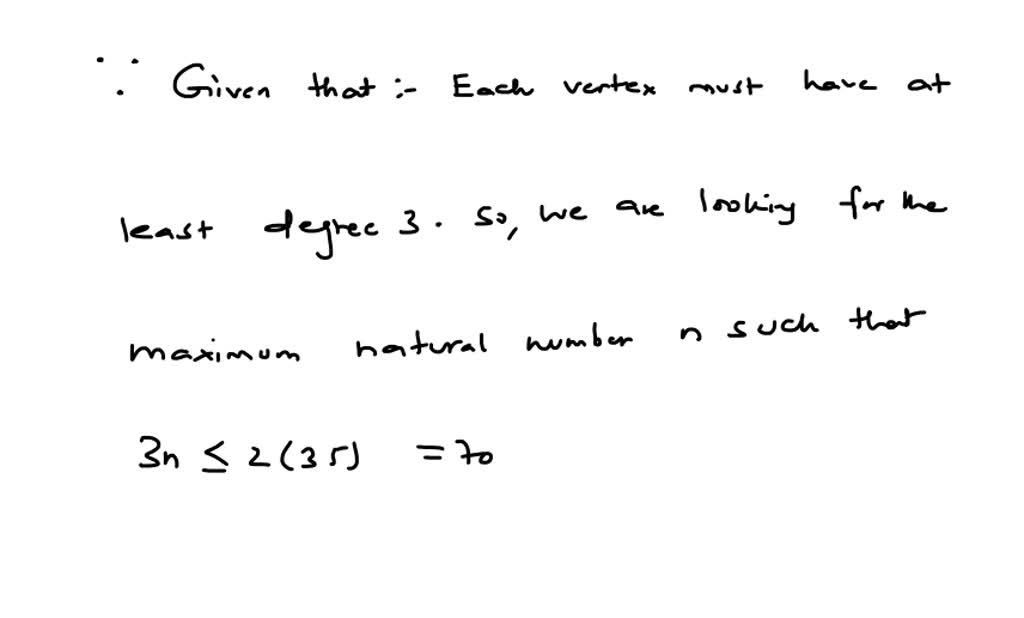 ∵ Given that :- Each vertex must have at
least degree 3. So, we are looking for the
maximum natural number n such that
3n ≤ 2(35) = 70